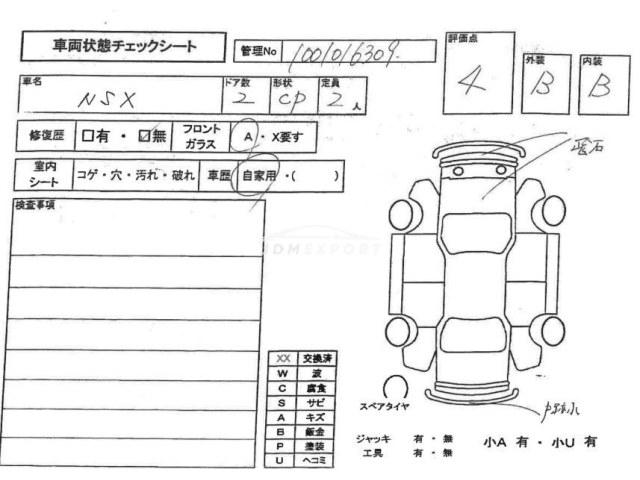 車両状態チェックシート
管理No 1001016309
評価点 4
外装 B
内装 B
車名 NSX
ドア数 2
形状 CP
定員 2 人
修復歴 □有 ・ ☑無
フロントガラス A ・ X要す
室内シート コゲ・穴・汚れ・破れ
車歴 自家用 ・( )
検査事項
JDMEXPORT
XX 交換済
W 波
C 腐食
S サビ
A キズ
B 鈑金
P 塗装
U ヘコミ
スペアタイヤ
ジャッキ 有 ・ 無
工具 有 ・ 無
小A 有 ・ 小U 有